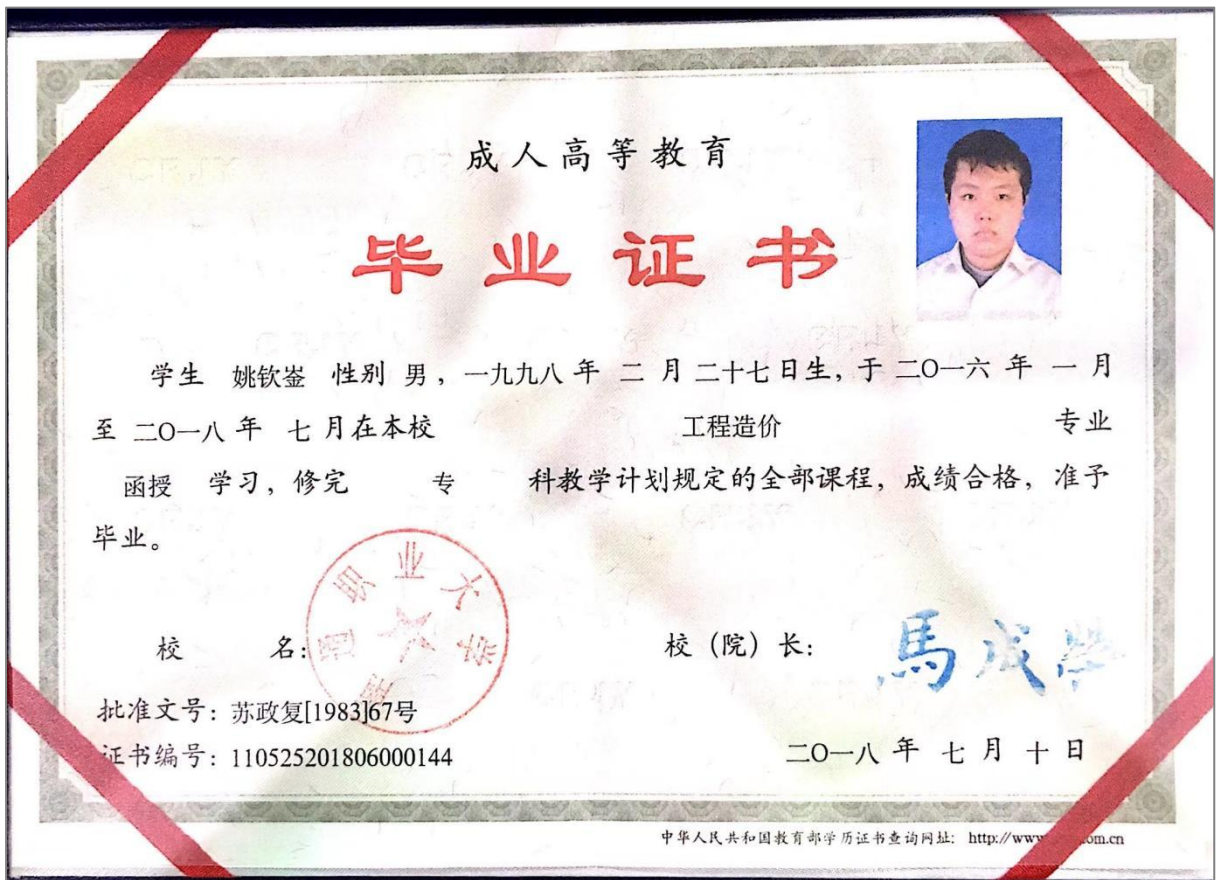 成人高等教育
毕业证书
学生 姚钦崟 性别 男，一九九八 年 二 月 二十七 日生，于 二〇一六 年 一 月
至 二〇一八 年 七 月在本校 工程造价 专业
函授 学习，修完 专 科教学计划规定的全部课程，成绩合格，准予
毕业。
通职业大学
校 名：
校（院）长：
馬成榮
批准文号：苏政复[1983]67号
证书编号：110525201806000144
二〇一八 年 七 月 十 日
中华人民共和国教育部学历证书查询网址: http://www om.cn